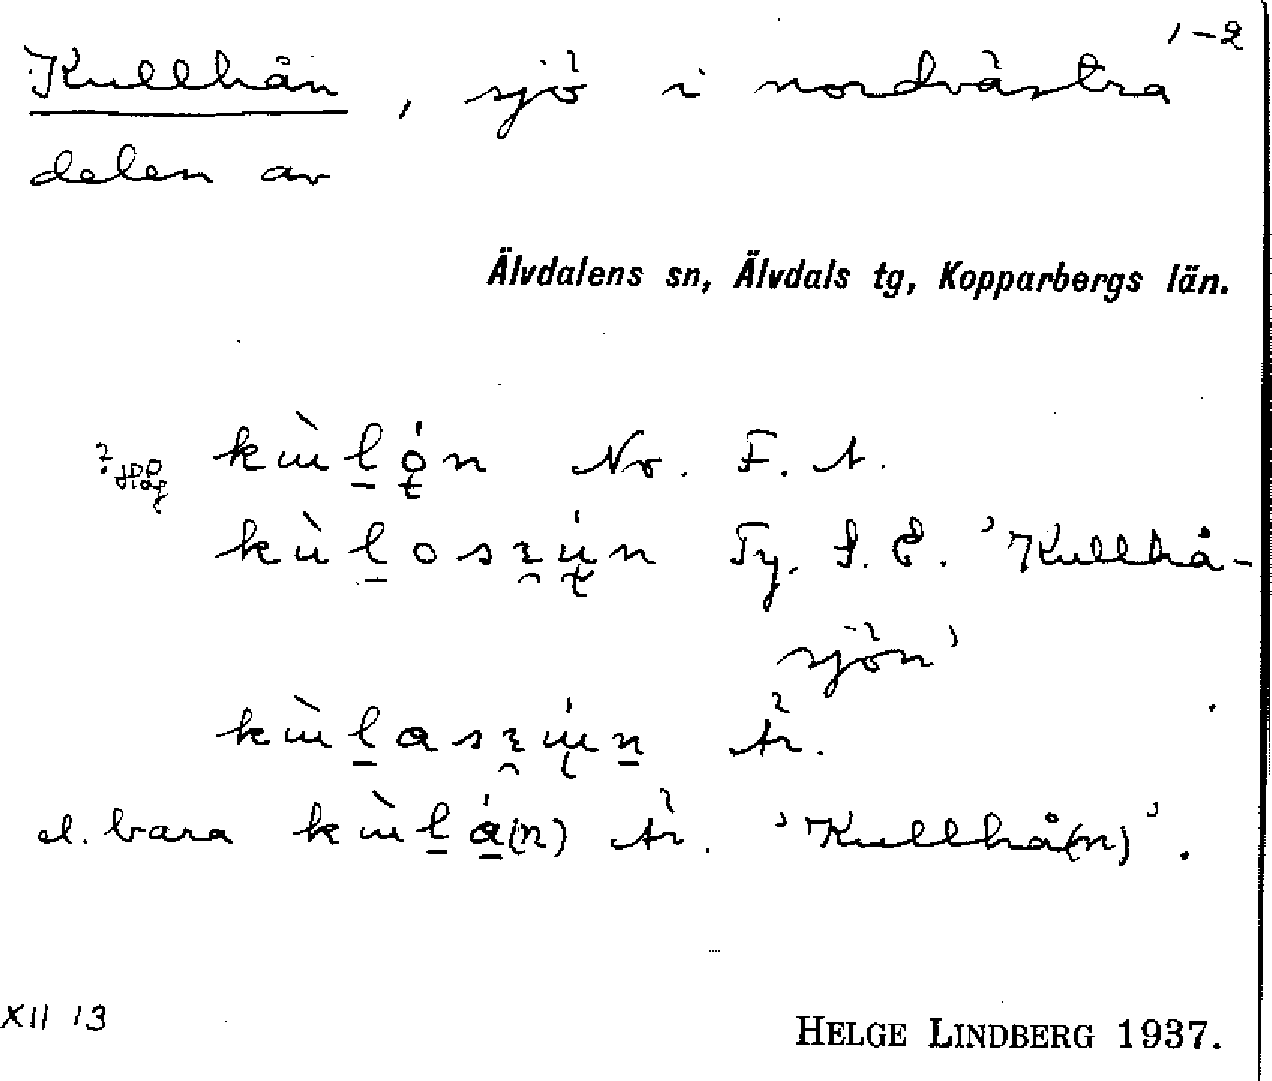 1-2
Kullhån, sjö i nordvästra
delen av
Älvdalens sn, Älvdals tg, Kopparbergs län.
No. F. A.
Ty. S. E. 'Kullhå-
sjön'
Är.
el. bara Är. 'Kullhå(n)'.
XII 13
HELGE LINDBERG 1937.